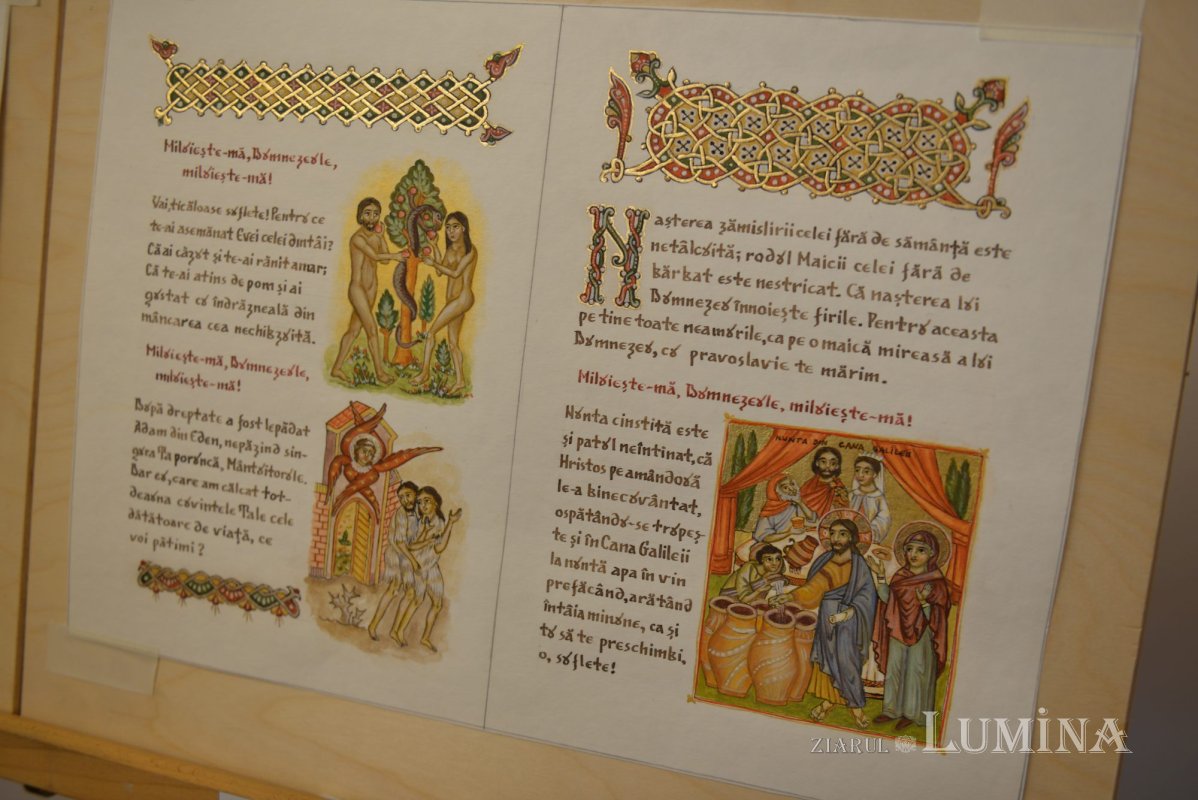 Miluiește-mă, Dumnezeule,
miluiește-mă!
Vai, ticăloase suflete! Pentru ce
te-ai asemănat Evei celei dintâi?
Că ai căzut și te-ai rănit amar;
Că te-ai atins de pom și ai
gustat cu îndrăzneală din
mâncarea cea nechibzuită.
Miluiește-mă, Dumnezeule,
miluiește-mă!
După dreptate a fost lepădat
Adam din Eden, nepăzind sin-
gura Ta poruncă, Mântuitorule.
Dar eu, care am călcat tot-
deauna cuvintele Tale cele
dătătoare de viață, ce
voi pătimi?
Nașterea zămislirii celei fără de sămânță este
netâlcuită; rodul Maicii celei fără de
bărbat este nestricat. Că nașterea lui
Dumnezeu înnoiește firile. Pentru aceasta
pe tine toate neamurile, ca pe o maică mireasă a lui
Dumnezeu, cu pravoslavie te mărim.
Miluiește-mă, Dumnezeule, miluiește-mă!
Nunta cinstită este
și patul neîntinat, că
Hristos pe amândouă
le-a binecuvântat,
ospătându-se trupeș-
te și în Cana Galileii
la nuntă apa în vin
prefăcând, arătând
întâia minune, ca și
tu să te preschimbi,
o, suflete!
NUNTA DIN CANA GALILEII
ZIARUL LUMINA